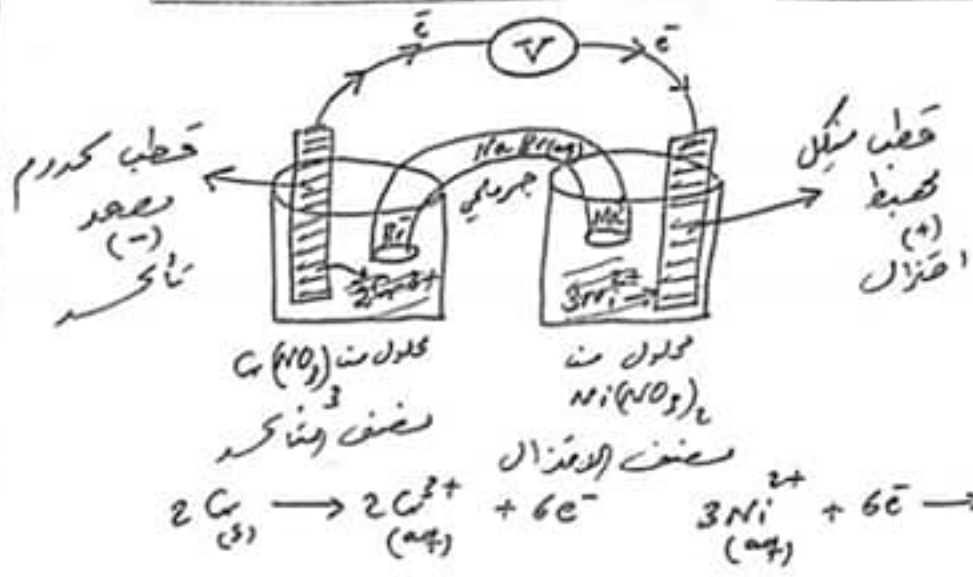 e⁻ V e⁻
قطب كروم
مصعد
(-)
تأكسد
NaBr(aq)
جسر ملحي
Br⁻
Na⁺
قطب نيكل
مهبط
(+)
اختزال
2Cr³⁺
3Ni²⁺
محلول من
Cr(NO₃)₃
محلول من
Ni(NO₃)₂
نصف التأكسد
نصف الاختزال
2Cr(s) → 2Cr³⁺(aq) + 6e⁻
3Ni²⁺(aq) + 6e⁻ →